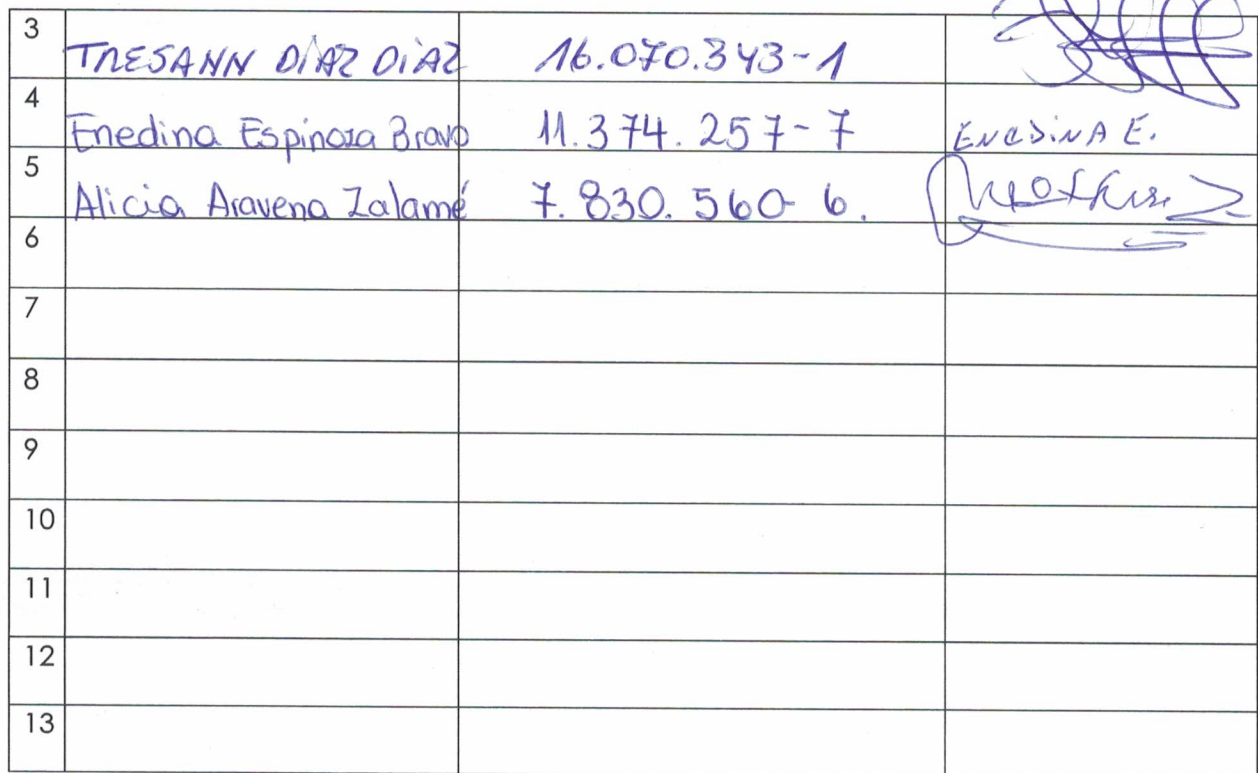 3 TRESANN DÍAZ DÍAZ 16.070.343-1
4 Enedina Espinoza Bravo 11.374.257-7 ENEDINA E.
5 Alicia Aravena Zalamé 7.830.560-6.
6
7
8
9
10
11
12
13